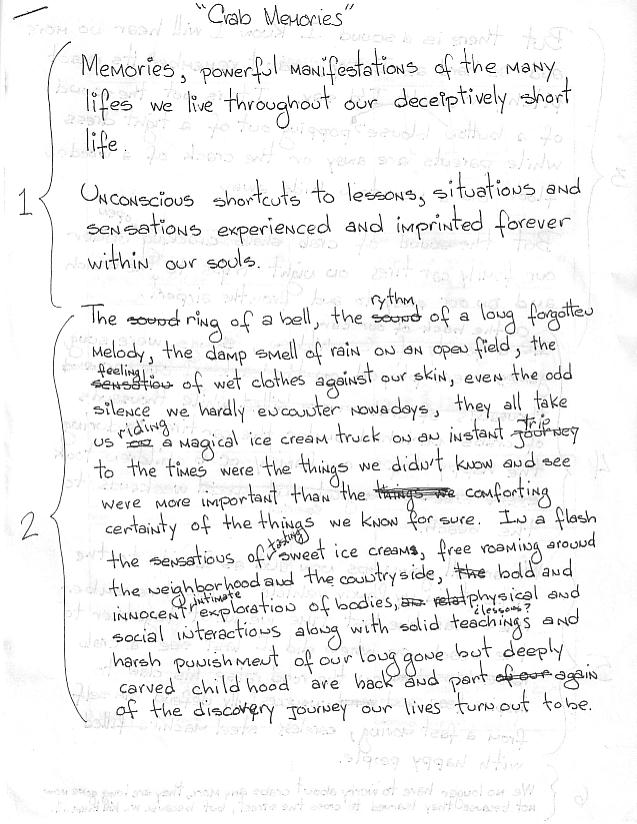 "Crab Memories"
Memories, powerful manifestations of the many
lifes we live throughout our deceiptively short
life.
1
Unconscious shortcuts to lessons, situations and
sensations experienced and imprinted forever
within our souls.
rythm,
The sound ring of a bell, the sound of a long forgotten
melody, the damp smell of rain on an open field, the
feeling
sensation of wet clothes against our skin, even the odd
silence we hardly encounter nowadays, they all take
riding trip
us on a magical ice cream truck on an instant journey
to the times were the things we didn't know and see
were more important than the things we comforting
2
certainty of the things we know for sure. In a flash
tasting
the sensations of sweet ice creams, free roaming around
the neighborhood and the countryside, the bold and
intimate
innocent exploration of bodies, physical and
¿lessons?
social interactions along with solid teachings and
harsh punishment of our long gone but deeply
carved childhood are back and part of our again
of the discovery journey our lives turn out to be.